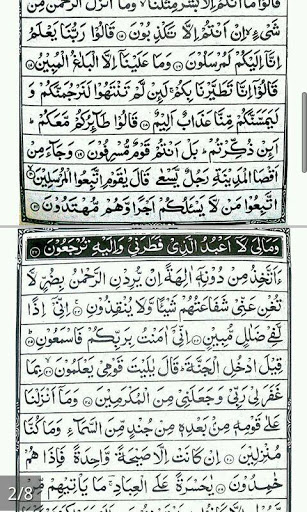 قَالُوْا مَآ اَنْتُمْ اِلَّا بَشَرٌ مِّثْلُنَا ۙ وَمَآ اَنْزَلَ الرَّحْمٰنُ مِنْ
شَیْءٍ ۙ اِنْ اَنْتُمْ اِلَّا تَكْذِبُوْنَ ﴿۱۵﴾ قَالُوْا رَبُّنَا یَعْلَمُ
اِنَّاۤ اِلَیْكُمْ لَمُرْسَلُوْنَ ﴿۱۶﴾ وَمَا عَلَیْنَاۤ اِلَّا الْبَلٰغُ الْمُبِیْنُ ﴿۱۷﴾
قَالُوْۤا اِنَّا تَطَیَّرْنَا بِكُمْ ۚ لَئِنْ لَّمْ تَنْتَهُوْا لَنَرْجُمَنَّكُمْ وَ
لَیَمَسَّنَّكُمْ مِّنَّا عَذَابٌ اَلِیْمٌ ﴿۱۸﴾ قَالُوْا طَآئِرُكُمْ مَّعَكُمْ ؕ
اَئِنْ ذُكِّرْتُمْ ؕ بَلْ اَنْتُمْ قَوْمٌ مُّسْرِفُوْنَ ﴿۱۹﴾ وَجَآءَ مِنْ
اَقْصَا الْمَدِیْنَةِ رَجُلٌ یَّسْعٰی قَالَ یٰقَوْمِ اتَّبِعُوا الْمُرْسَلِیْنَ ﴿۲۰﴾
اتَّبِعُوْا مَنْ لَّا یَسْـَٔلُكُمْ اَجْرًا وَّهُمْ مُّهْتَدُوْنَ ﴿۲۱﴾
وَمَا لِیَ لَاۤ اَعْبُدُ الَّذِیْ فَطَرَنِیْ وَاِلَیْهِ تُرْجَعُوْنَ ﴿۲۲﴾
ءَاَتَّخِذُ مِنْ دُوْنِهٖۤ اٰلِهَةً اِنْ یُّرِدْنِ الرَّحْمٰنُ بِضُرٍّ لَّا
تُغْنِ عَنِّیْ شَفَاعَتُهُمْ شَیْـًٔا وَّلَا یُنْقِذُوْنِ ﴿۲۳﴾ اِنِّیْۤ اِذًا
لَّفِیْ ضَلٰلٍ مُّبِیْنٍ ﴿۲۴﴾ اِنِّیْۤ اٰمَنْتُ بِرَبِّكُمْ فَاسْمَعُوْنِ ﴿۲۵﴾
قِیْلَ ادْخُلِ الْجَنَّةَ ؕ قَالَ یٰلَیْتَ قَوْمِیْ یَعْلَمُوْنَ ﴿۲۶﴾ بِمَا
غَفَرَ لِیْ رَبِّیْ وَجَعَلَنِیْ مِنَ الْمُكْرَمِیْنَ ﴿۲۷﴾ وَمَاۤ اَنْزَلْنَا
عَلٰی قَوْمِهٖ مِنْۢ بَعْدِهٖ مِنْ جُنْدٍ مِّنَ السَّمَآءِ وَمَا كُنَّا
مُنْزِلِیْنَ ﴿۲۸﴾ اِنْ كَانَتْ اِلَّا صَیْحَةً وَّاحِدَةً فَاِذَا هُمْ
خٰمِدُوْنَ ﴿۲۹﴾ یٰحَسْرَةً عَلَی الْعِبَادِ ۚ مَا یَاْتِیْهِمْ مِّنْ
2/8